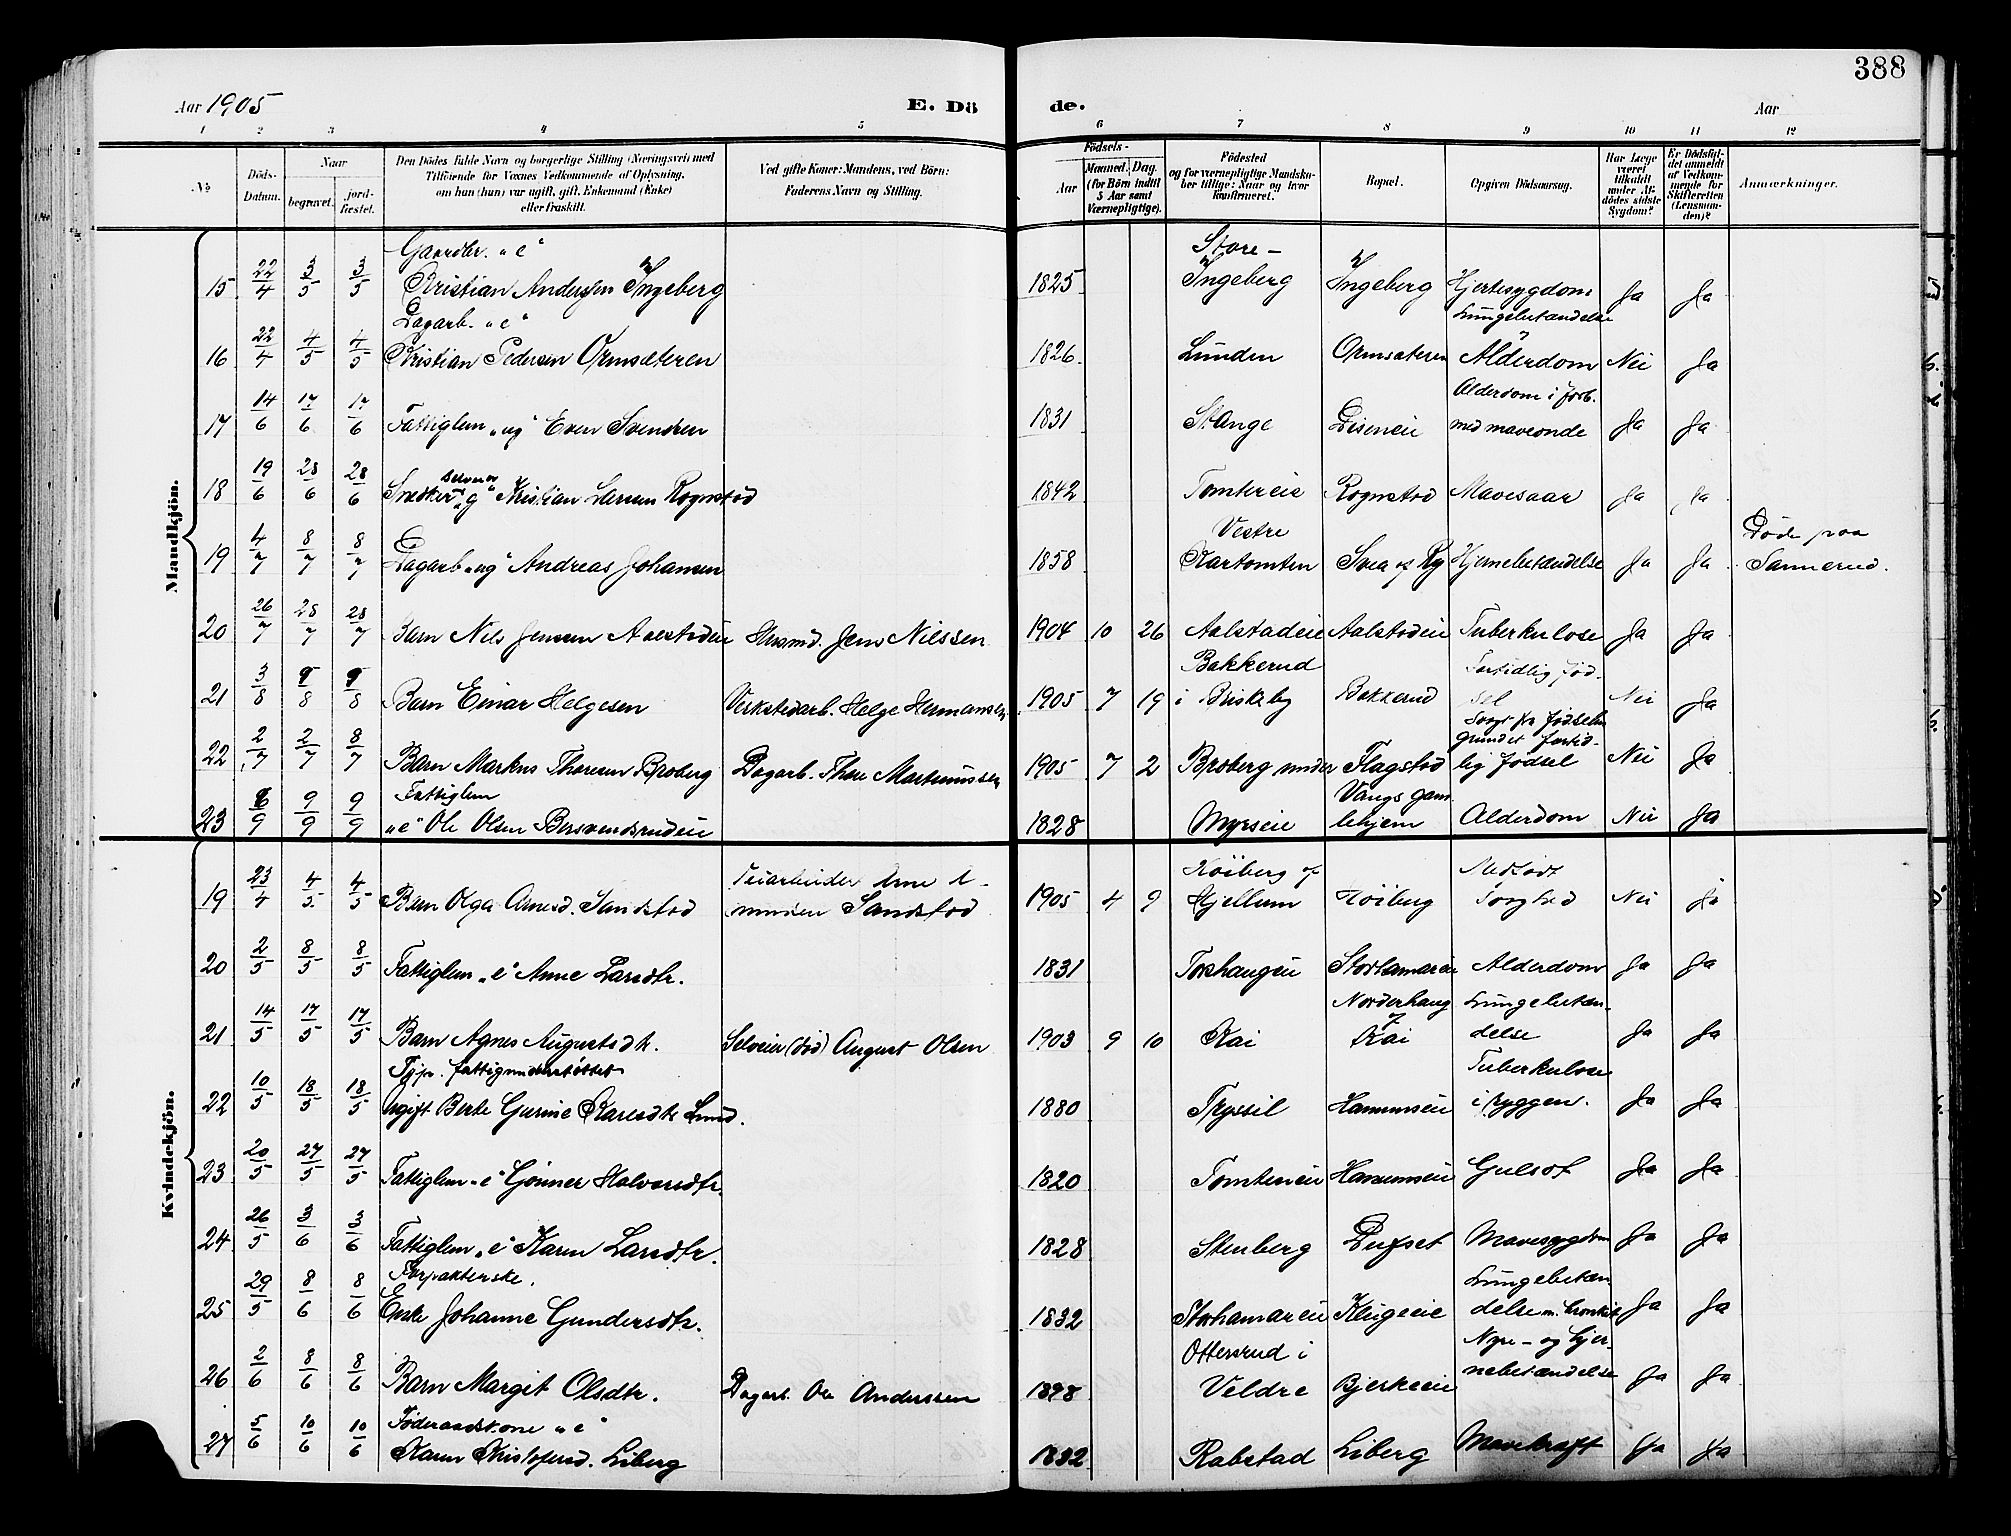 388
Aar 1905 E. Dö de. Aar
1 2 3 4 5 6 7 8 9 10 11 12
No.
Döds-Datum.
Naar
begravet.
jord-fæstet.
Den Dödes fulde Navn og borgerlige Stilling (Næringsvei) med
Tilföiende for Voxnes Vedkommende af Oplysning,
om han (hun) var ugift, gift, Enkemand (Enke)
eller fraskilt.
Ved gifte Koner: Mandens, ved Börn:
Faderens Navn og Stilling.
Födsels-
Aar
Maaned. Dag.
(for Börn indtil
5 Aar samt
Værnepligtige).
Födested
og for værnepligtige Mandska-
ber tillige: Naar og hvor
konfirmeret.
Bopæl.
Opgiven Dödsaarsag.
Har Læge
været
tilkaldt
under Af-
dödes sidste
Sygdom?
Er Dödsfal-
det anmeldt
af Vedkom-
mende for
Skifteretten
(Lensman-
den)?
Anmærkninger.
Mandkjön.
Gaardbr. "e" Store-
15 22/4 3/5 3/5 Kristian Andersen Ingeberg 1825 Ingeberg Ingeberg Hjertesygdom Ja Ja
Dagarb. "e" Lungebetændelse
16 22/4 4/5 4/5 Kristian Pedersen Ormsæteren 1826 Lunden Ormsæteren Alderdom Nei Ja
Alderdom i forb.
17 14/6 17/6 17/6 Fattiglem "ug" Even Svendsen 1831 Stange Diseneie med maveonde Ja Ja
18 19/6 28/6 28/6 Snedker "g" Kristian Larsen Rognstad 1842 Tomtereie Rognstad Mavesaar Ja Ja
Vestre Døde paa
19 4/7 8/7 8/7 Dagarb "ug" Andreas Johansen 1858 Kartomten Svea af Ry Hjernebetændelse Ja Ja Sannerud.
20 26/7 28/7 28/7 Barn Nils Jensen Aalstadeie Husmd. Jens Nilssen 1904 10 26 Aalstadeie Aalstadeie Tuberkulose Ja Ja
Bakkerud Fortidlig fød-
21 3/8 9/8 9/8 Barn Einar Helgesen Verkstedarb. Helge Hermansen 1905 7 19 i Briskeby Bakkerud sel Nei Ja
Svagt fra fødselen
grundet fortid-
22 2/7 2/7 8/7 Barn Markus Thoresen Broberg Dagarb. Thore Martinussen 1905 7 2 Broberg under Flagstad lig fødsel Nei Ja
Fattiglem Vangs gam
23 6/9 9/9 9/9 "e" Ole Olsen Bersvendsrudeie 1828 Myrseie lehjem Alderdom Nei Ja
Kvindekjön.
Veiarbeider Arne A- Høiberg af Medfødt
19 23/4 4/5 4/5 Barn Olga Arnesd. Sandstad mundsen Sandstad 1905 4 9 Hjellum Høiberg Svaghed Nei Ja
20 2/5 8/5 8/5 Fattiglem "e" Anne Larsdtr. 1831 Torshaugeie Storhamareie Alderdom Ja Ja
Norderhaug Lungebetæn-
21 14/5 17/5 17/5 Barn Agnes Augustsdtr. Selveier (død) August Olsen 1903 9 10 Kai Kai delse Ja Ja
Tjp. fattigunderstøttet Tuberkulose
22 10/5 18/5 18/5 Ugift Berte Gurine Karesdtr Lund. 1880 Trysil Hommseie i ryggen. Ja Ja
23 20/5 27/5 27/5 Fattiglem "e" Gønner Halvorsdtr. 1820 Tomtereie Hommseie Gulsot Ja Ja
24 26/5 3/6 3/6 Fattiglem "e" Karen Larsdtr. 1828 Stenberg Dufset Mavesygdom Ja Ja
Forpakterske. Lungebetæn
25 29/5 8/6 8/6 Enke Johanne Gundersdtr. 1832 Storhamareie Klugeeie delse m. bronkit Ja Ja
Ottersrud i Nyre- og hjer-
26 2/6 8/6 8/6 Barn Margit Olsdtr. Dagarb. Ole Anderssen 1898 Veldre Bjerkeeie nebetændelse Ja Ja
Føderaadskone "e"
27 5/6 10/6 10/6 Karen Kristofersd. Liberg 1832 Rabstad Liberg Mavekræft Ja Ja